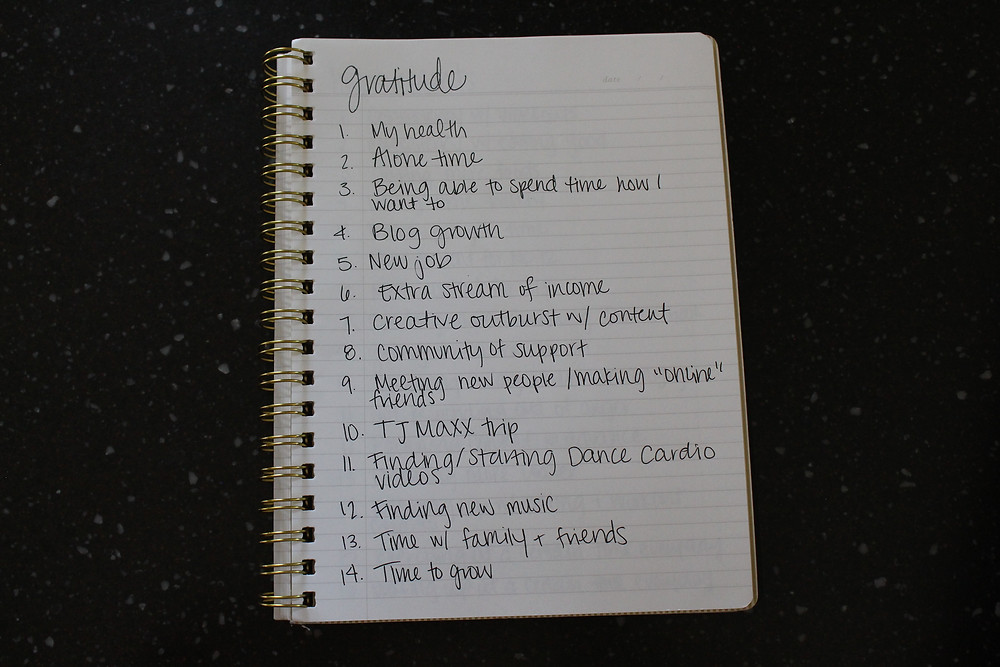 gratitude
1. My health
2. Alone time
3. Being able to spend time how I
want to
4. Blog growth
5. New job
6. Extra stream of income
7. Creative outburst w/ content
8. Community of support
9. Meeting new people /making "online"
friends
10. TJ Maxx trip
11. Finding/Starting Dance Cardio
videos
12. Finding new music
13. Time w/ family + friends
14. Time to grow